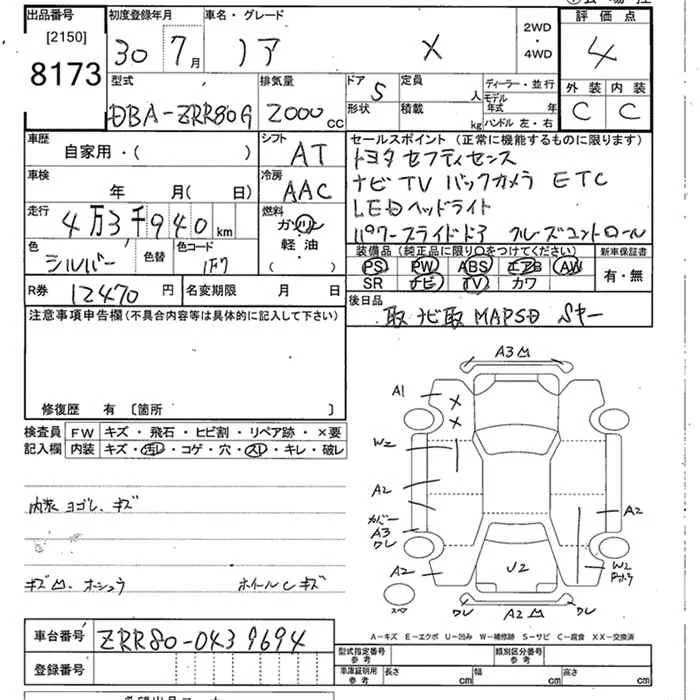 出品番号 初度登録年月 車名・グレード 2WD ・ 4WD 評価点
[2150]
8173
30年 7月 ノア X 4
型式 排気量 ドア 5 定員 人 ディーラー・並行
DBA-ZRR80G 2000cc 形状 積載 kg モデル年式 年
ハンドル 左・右
外装 内装
C C
車歴 自家用・( )
シフト AT
セールスポイント (正常に機能するものに限ります)
トヨタセフティセンス
ナビTV バックカメラ ETC
LEDヘッドライト
パワースライドドア クルーズコントロール
車検 年 月( 日)
冷房 AAC
走行 4万3千940km
燃料 ガソリン 軽油 ( )
色 シルバー 色替 色コード 1F7
装備品 (純正品に限り○をつけてください) 新車保証書
PS PW ABS エアB AW
SR ナビ TV カワ
有・無
R券 12470円 名変期限 月 日
後日品 取 ナビ取 MAPSD Sキー
注意事項申告欄(不具合内容等は具体的に記入して下さい)
修復歴 有 〔箇所 〕
検査員 FW キズ・飛石・ヒビ割・リペア跡・×要
記入欄 内装 キズ・汚レ・コゲ・穴・スレ・キレ・破レ
内装 ヨゴレ、キズ
ホイールキズ
A3
A1
X
X
W2
A2
カバー
A3
ワレ
A2
A2
W2
U2
スペア
ワレ A2 ワレ
A-キズ E-エクボ U-凹み W-補修跡 S-サビ C-腐食 XX-交換済
車台番号 ZRR80-0439694
登録番号
型式指定番号 参考 類別区分番号 参考
車庫証明用 参考 長さ cm 幅 cm 高さ cm